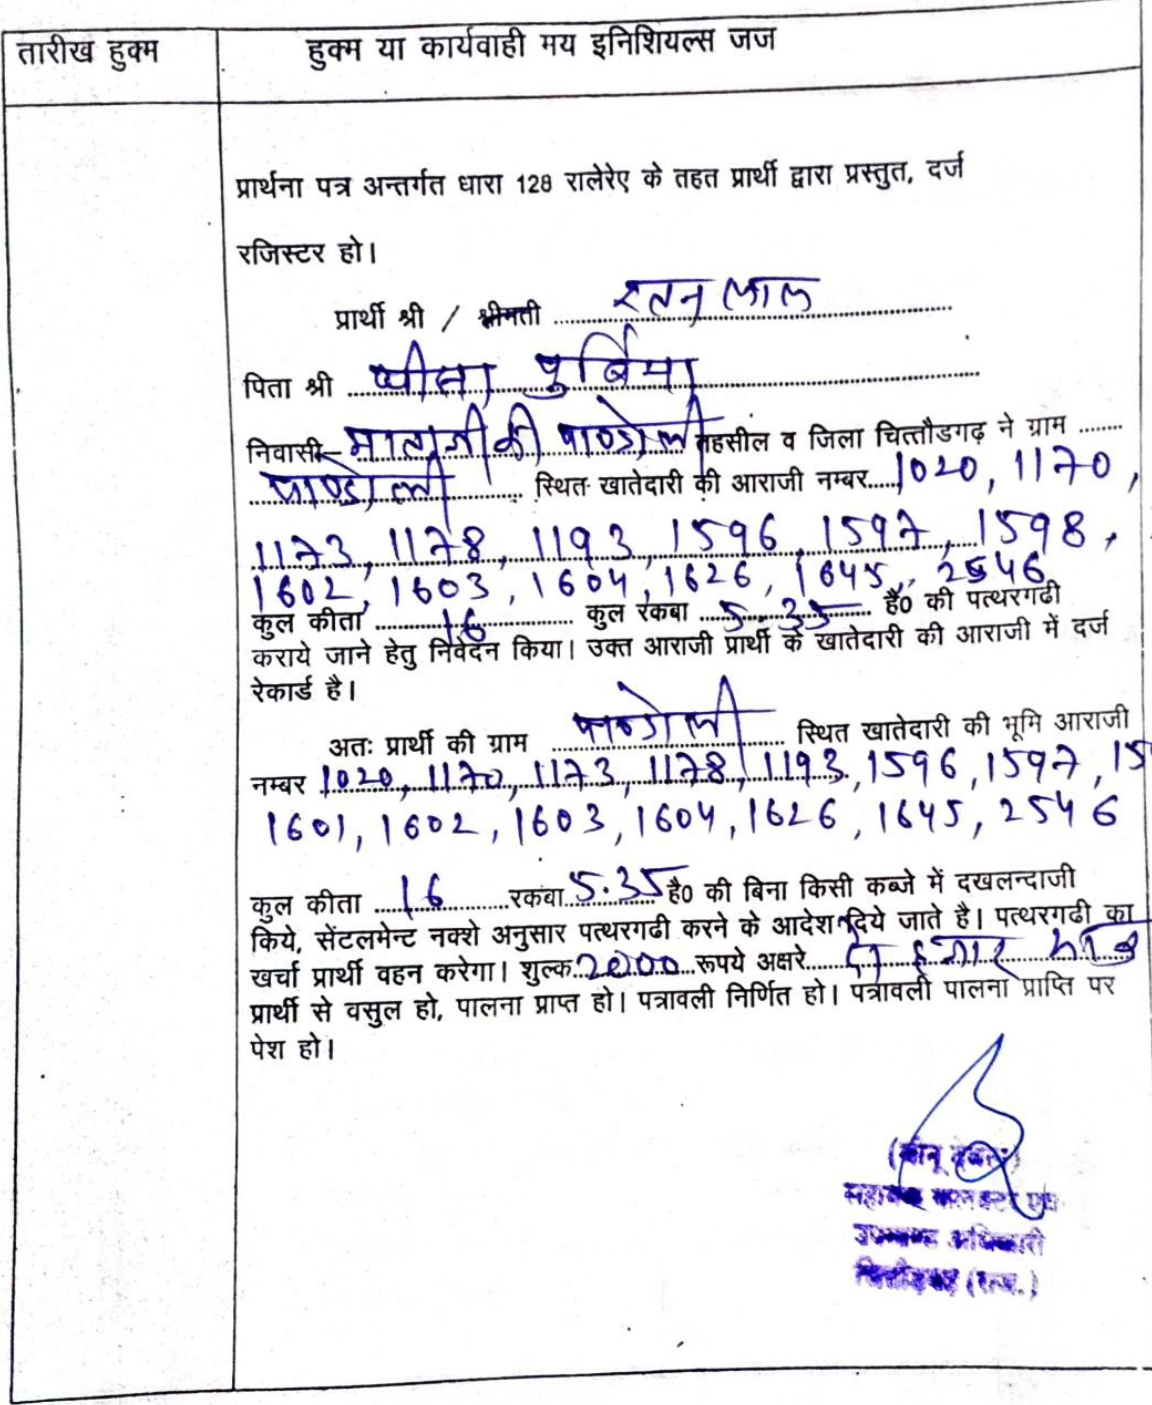 तारीख हुक्म
हुक्म या कार्यवाही मय इनिशियल्स जज
प्रार्थना पत्र अन्तर्गत धारा 128 रालेरेए के तहत प्रार्थी द्वारा प्रस्तुत, दर्ज
रजिस्टर हो।
प्रार्थी श्री / श्रीमती रतन लाल
पिता श्री पुर्बिया
निवासी– की पाण्डोली तहसील व जिला चित्तौडगढ़ ने ग्राम
पाण्डोली स्थित खातेदारी की आराजी नम्बर 1020, 1170,
1173, 1178, 1193, 1596, 1597, 1598,
1602, 1603, 1604, 1626, 1645, 2546
कुल कीता 16 कुल रकबा 5.35 है0 की पत्थरगढी
कराये जाने हेतु निवेदन किया। उक्त आराजी प्रार्थी के खातेदारी की आराजी में दर्ज
रेकार्ड है।
अतः प्रार्थी की ग्राम पाण्डोली स्थित खातेदारी की भूमि आराजी
नम्बर 1020, 1170, 1173, 1178, 1193, 1596, 1597, 15
1601, 1602, 1603, 1604, 1626, 1645, 2546
कुल कीता 16 रकबा 5.35 है0 की बिना किसी कब्जे में दखलन्दाजी
किये, सेंटलमेन्ट नक्शे अनुसार पत्थरगढी करने के आदेश दिये जाते है। पत्थरगढी का
खर्चा प्रार्थी वहन करेगा। शुल्क 2000 रूपये अक्षरे दो हजार मात्र
प्रार्थी से वसुल हो, पालना प्राप्त हो। पत्रावली निर्णित हो। पत्रावली पालना प्राप्ति पर
पेश हो।
उपखण्ड अधिकारी
चित्तौड़गढ़ (राज.)